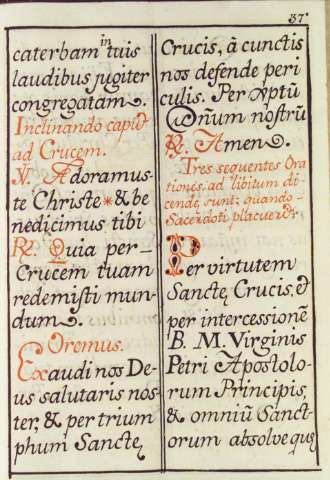 37
caterbam in tuis
laudibus jugiter
congregatam.
Inclinando caput
ad Crucem.
℣. Adoramus
te Christe * & be
nedicimus tibi
℟. Quia per-
Crucem tuam
redemisti mun-
dum.
Oremus.
Exaudi nos De-
us salutaris nos-
ter, & per trium
phum Sanctę
Crucis, à cunctis
nos defende peri
culis. Per xp̄tū
Dnum nostrū
℟. Amen.
Tres sequentes Ora
tiones, ad libitum di
cendę sunt; quando-
Sacerdoti placuerīt
Per virtutem
Sanctę Crucis, et
per intercessionē
B. M. Virginis
Petri Apostolo-
rum Principis,
& omniū Sanct-
orum absolve quę